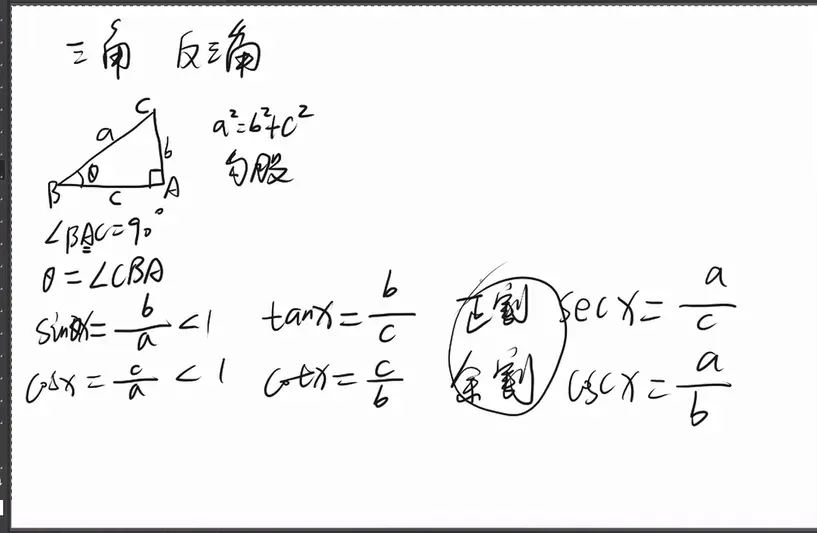 三角 反三角
C
a
b
θ
B
c
A
a²=b²+c²
勾股
∠BAC=90°
θ=∠CBA
sinx=b/a<1
tanx=b/c
正割 secx=a/c
cosx=c/a<1
cotx=c/b
余割 cscx=a/b